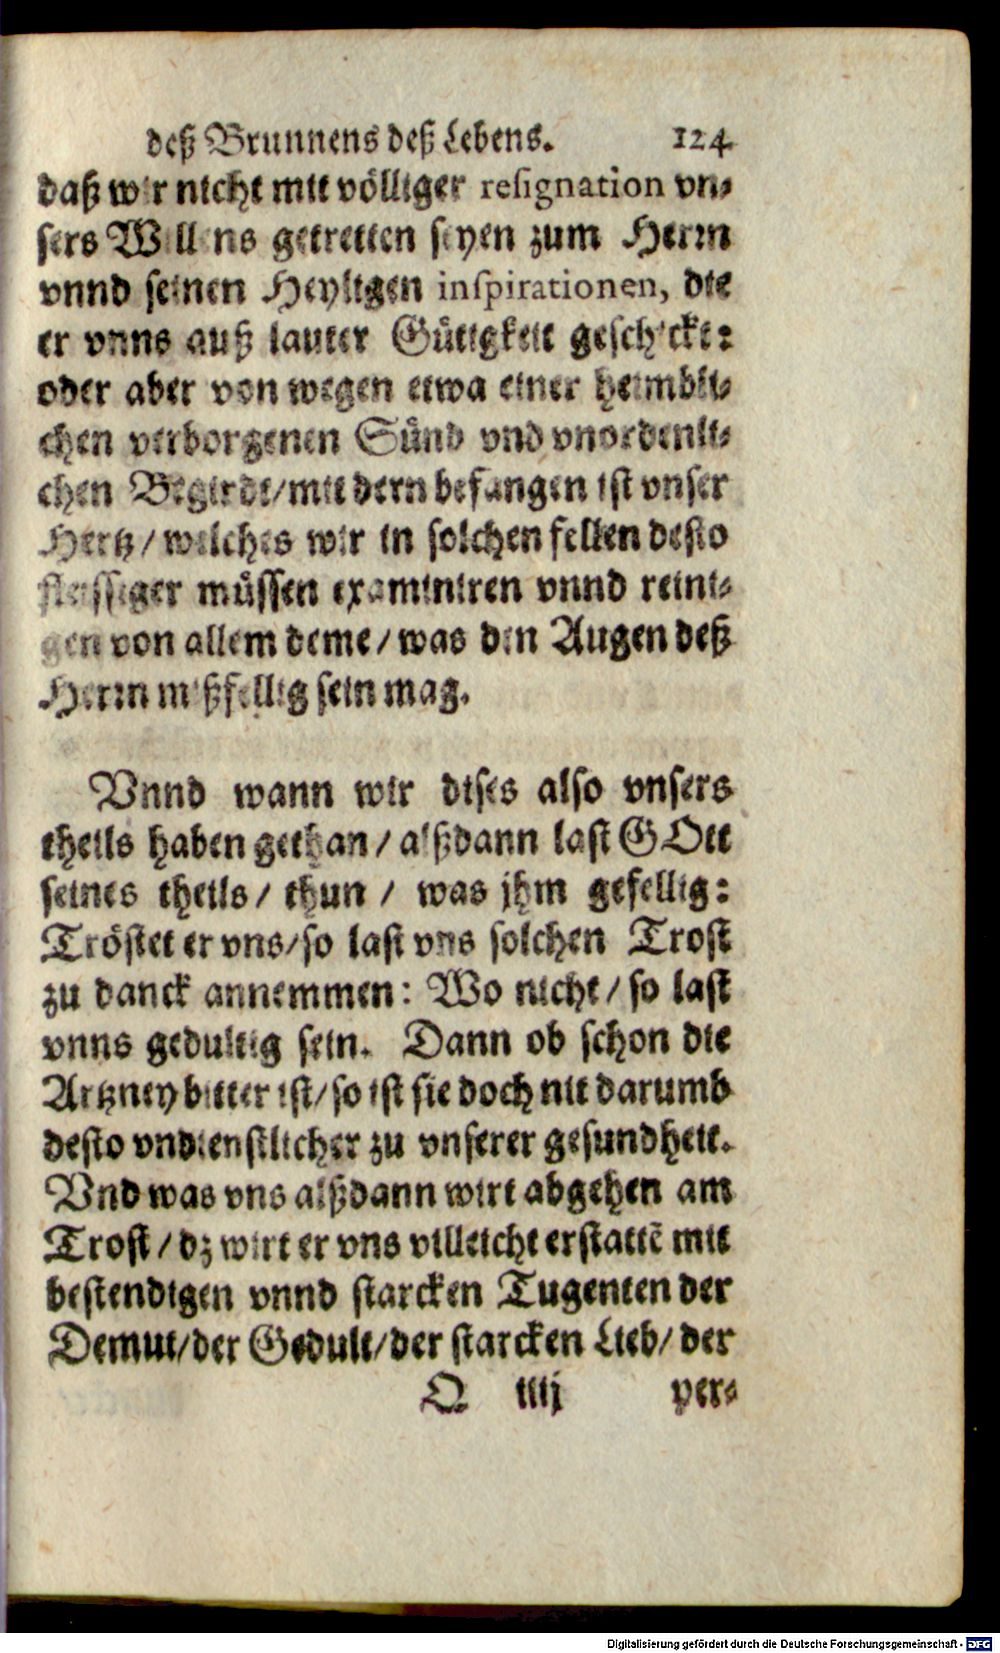 deß Brunnens deß Lebens. 124
daß wir nicht mit völliger resignation vn-
sers Willens getretten seyen zum Herrn
vnnd seinen Heyligen inspirationen, die
er vnns auß lauter Gütigkeit geschickt:
oder aber von wegen etwa einer heimbli-
chen verborgenen Sünd vnd vnordenli-
chen Begirde/mit dern befangen ist vnser
Hertz/welches wir in solchen fellen desto
fleissiger müssen examiniren vnnd reini-
gen von allem deme/was den Augen deß
Herrn mißfellig sein mag.
Vnnd wann wir dises also vnsers
theils haben gethan/alßdann last GOtt
seines theils/thun/was jhm gefellig:
Tröstet er vns/so last vns solchen Trost
zu danck annemmen: Wo nicht/so last
vnns gedultig sein. Dann ob schon die
Artzney bitter ist/so ist sie doch nit darumb
desto vndienstlicher zu vnserer gesundheit.
Vnd was vns alßdann wirt abgehen am
Trost/dz wirt er vns villeicht erstattē mit
bestendigen vnnd starcken Tugenten der
Demut/der Gedult/der starcken Lieb/der
Q iiij per-
Digitalisierung gefördert durch die Deutsche Forschungsgemeinschaft - DFG